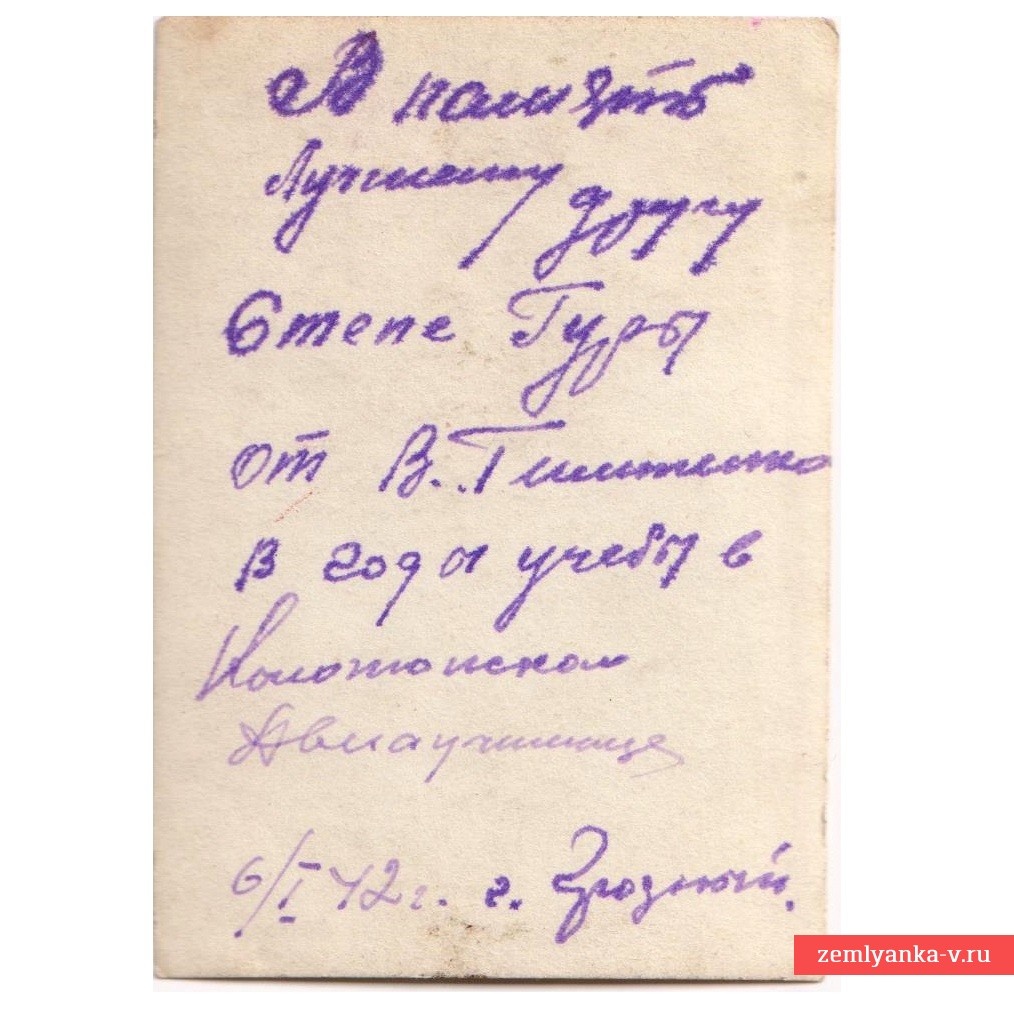 В память
Лучшему другу
Степе Гуды
от В.
в годы учебы в
Конотопском
Авиаучилище
6/I 42 г. г. Грозный.
zemlyanka-v.ru